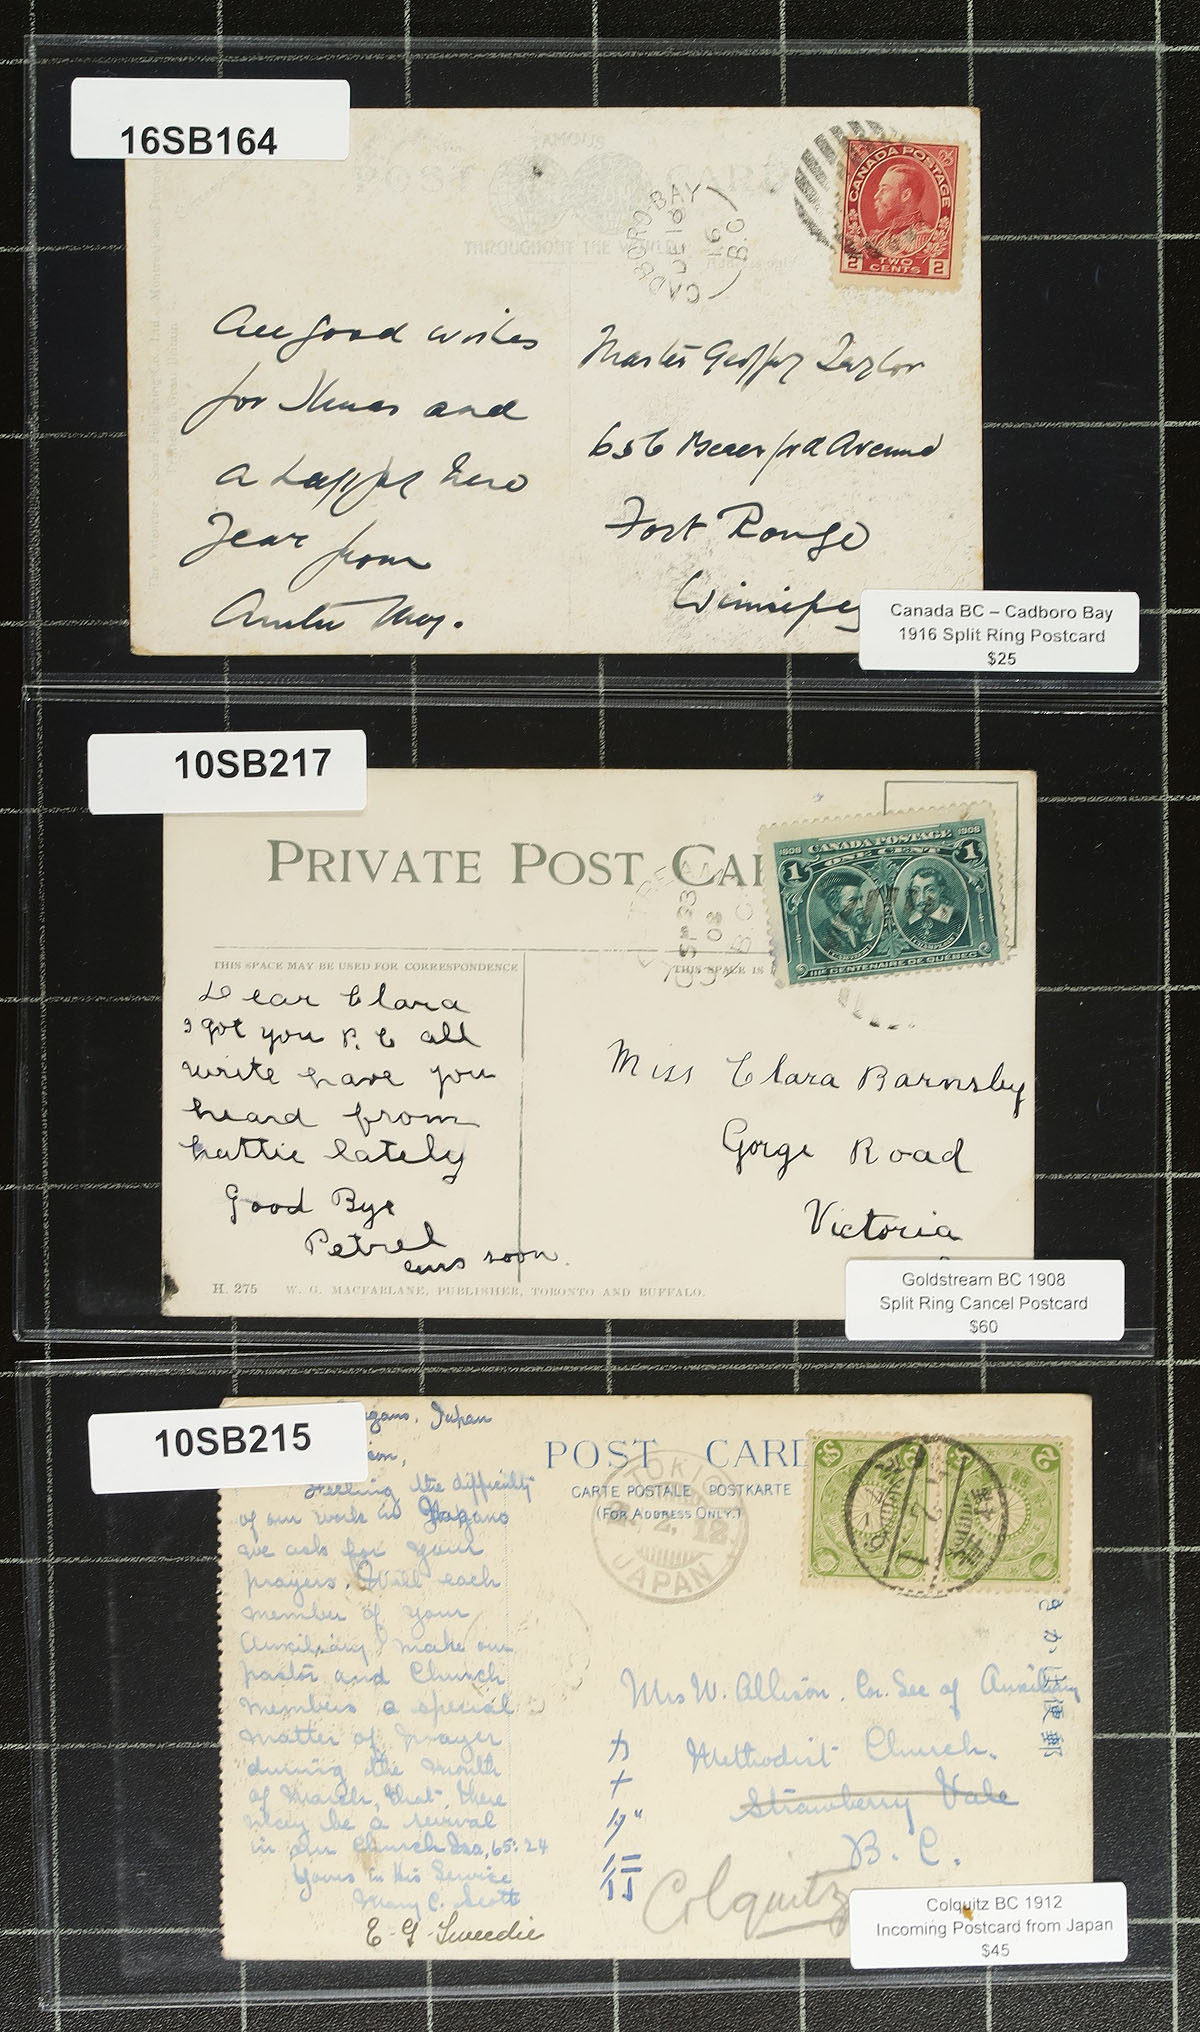 16SB164
FAMOUS
POST CARD
THROUGHOUT THE WORLD
CADBORO BAY
DE 18
16
B.C.
CANADA POSTAGE
2 TWO CENTS 2
All good wishes
for Xmas and
a happy New
Year from
Auntie May.
Master Geoffrey Taylor
656 Beresford Avenue
Fort Rouge
Winnipeg
Canada BC – Cadboro Bay
1916 Split Ring Postcard
$25
10SB217
PRIVATE POST CAR
SP 23
08
B.C.
1608 CANADA POSTAGE 1908
1 ONE CENT 1
CARTIER CHAMPLAIN
IIIE CENTENAIRE DE QUEBEC
THIS SPACE MAY BE USED FOR CORRESPONDENCE
THIS SPACE IS
Dear Clara
I got you P. C all
write have you
heard from
hattie lately
Good Bye
Petrel
ans soon
Miss Clara Barnsby
Gorge Road
Victoria
H. 275 W. G. MACFARLANE, PUBLISHER, TORONTO AND BUFFALO.
Goldstream BC 1908
Split Ring Cancel Postcard
$60
10SB215
Japan
POST CARD
CARTE POSTALE POSTKARTE
(FOR ADDRESS ONLY.)
TOKIO
2. 12
JAPAN
Feeling the difficulty
of our work in
we ask for your
prayers. Will each
member of your
Auxiliary make our
pastor and Church
members a special
matter of prayer
during the month
of March, that there
may be a revival
in our Church Isa, 65:24
Yours in His Service
Mary C. Scott
E. G. Tweedie
きがは便郵
Mrs W. Allison. Cor. Sec of Auxiliary
Methodist Church.
Strawberry Vale
B. C.
カナダ行
Colquitz
Colquitz BC 1912
Incoming Postcard from Japan
$45